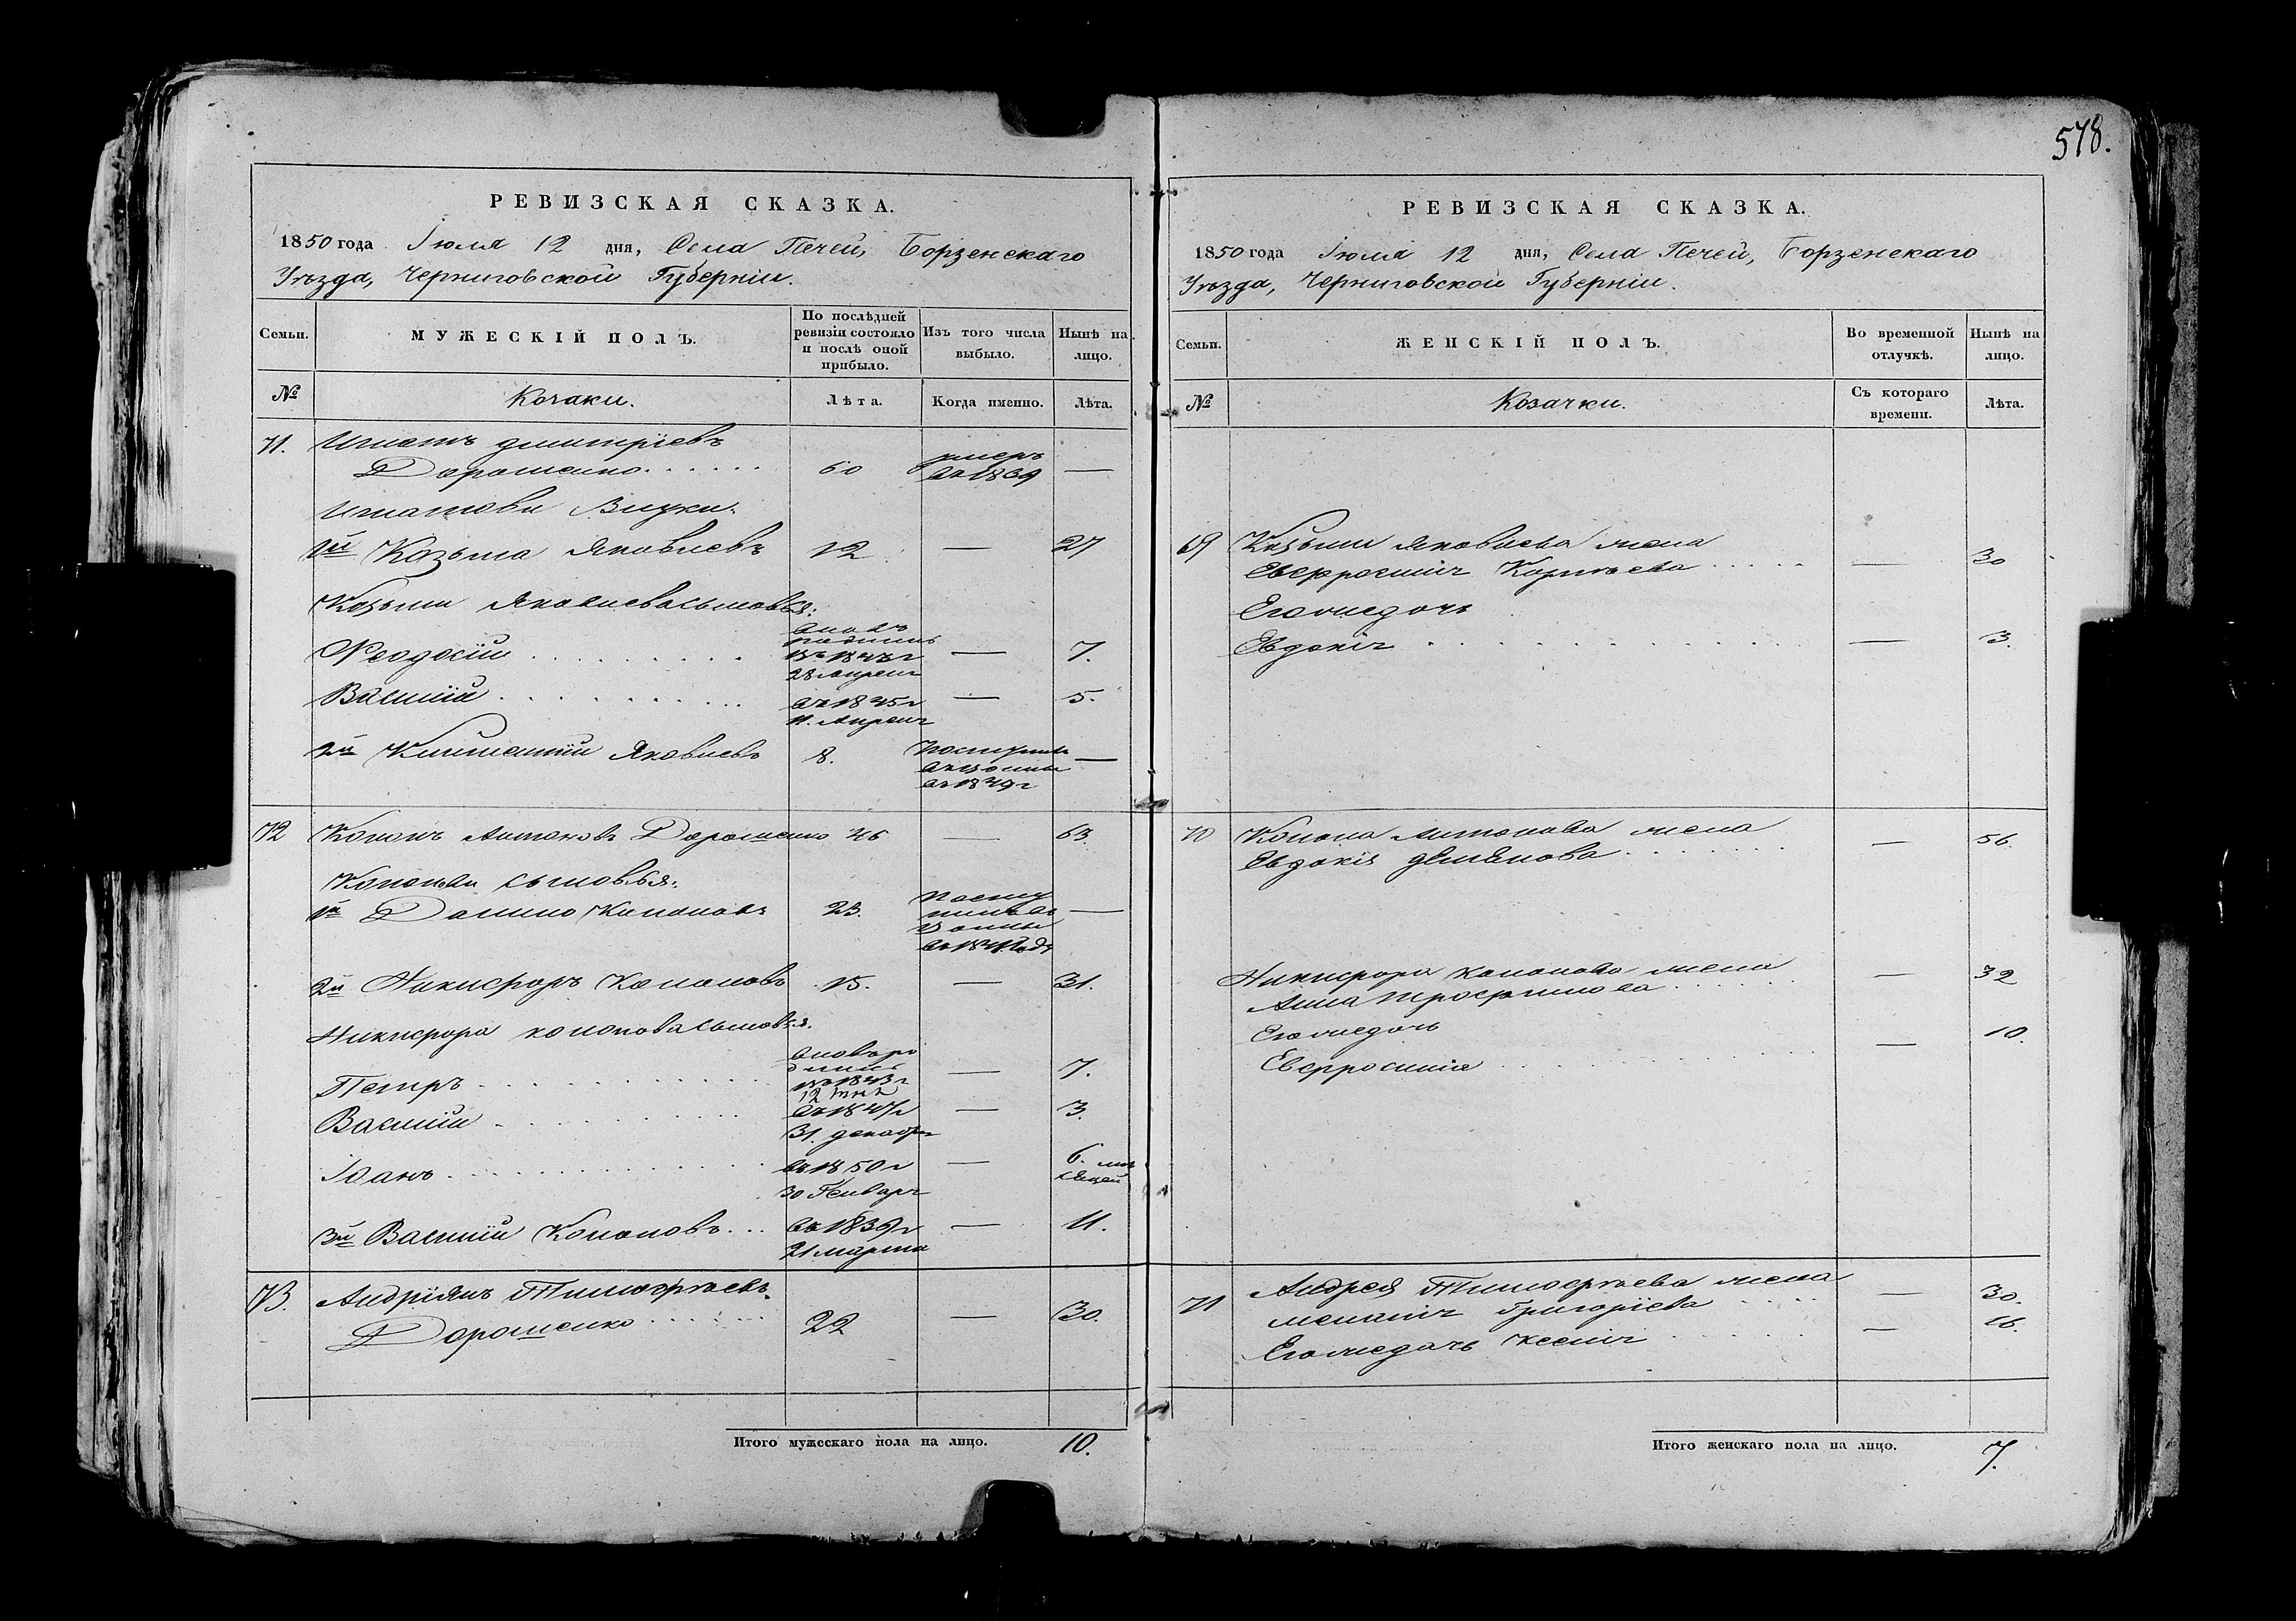 578.
РЕВИЗСКАЯ СКАЗКА.
1850 года Іюля 12 дня, Села Печей, Борзенскаго
Уѣзда, Черниговской Губерніи.
Семьи.
МУЖЕСКІЙ ПОЛЪ.
По послѣдней
ревизіи состояло
и послѣ оной
прибыло.
Изъ того числа
выбыло.
Нынѣ на
лицо.
№
Козаки.
Лѣта.
Когда именно.
Лѣта.
71. Игнатъ Дмитріевъ
Дорошенко 60 умеръ —
въ 1839
Игнатовы Внуки:
1й Козьма Яковлевъ 12 — 27
Козьмы Яковлева сыновья:
Феодосій — 7.
28 Апреля
Василій въ 1845 г — 5.
11. Апреля
2й Климентій Яковлевъ 8. —
въ 1849 г
72 Кононъ Антоновъ Дорошенко 46 — 63.
Кононовы сыновья:
1й Данило Кононовъ 23. —
2й Никифоръ Кононовъ 15. — 31.
Никифора Кононова сыновья.
Петръ въ 1843 г — 7.
Василій въ 1847 г — 3.
31. декабря
Іоанъ въ 1850 г — 6. мѣ
30 Генваря сяцей
3й Василій Кононовъ въ 1839 г — 11.
21 марта
73. Андріянъ Тимофѣевъ
Дорошенко 22 — 30.
Итого мужескаго пола на лицо. 10.
РЕВИЗСКАЯ СКАЗКА.
1850 года Іюля 12 дня, Села Печей, Борзенскаго
Уѣзда, Черниговской Губерніи.
Семьи.
ЖЕНСКІЙ ПОЛЪ.
Во временной
отлучкѣ.
Нынѣ на
лицо.
№
Козачки.
Съ котораго
времени.
Лѣта.
69 Козьмы Яковлева жена
Евфросинія Корнѣева — 30
Его же дочь
Евдокія — 3.
70 Конона Антонова жена
Евдокія Деменова — 56.
Никифора Кононова жена — 32
Анна Трофимова
Его же дочь
Евфросинія — 10.
71 Андрея Тимофѣева жена — 30.
Меланія Григоріева
Его же дочь Ксенія — 16.
Итого женскаго пола на лицо. 7.